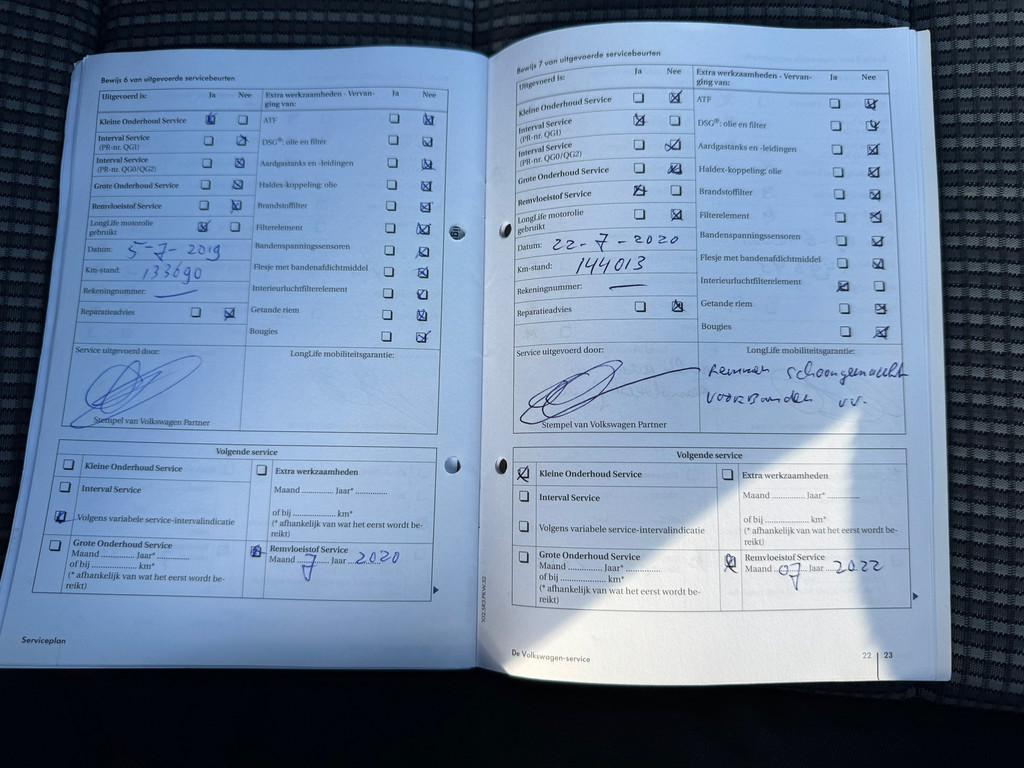 Bewijs 6 van uitgevoerde servicebeurten
Uitgevoerd is: Ja Nee
Kleine Onderhoud Service
Interval Service
(PR-nr. QG1)
Interval Service
(PR-nr. QG0/QG2)
Grote Onderhoud Service
Remvloeistof Service
LongLife motorolie
gebruikt
Datum: 5-7-2019
Km-stand: 133690
Rekeningnummer: —
Reparatieadvies
Extra werkzaamheden - Vervan-
ging van: Ja Nee
ATF
DSG®: olie en filter
Aardgastanks en -leidingen
Haldex-koppeling: olie
Brandstoffilter
Filterelement
Bandenspanningssensoren
Flesje met bandenafdichtmiddel
Interieurluchtfilterelement
Getande riem
Bougies
Service uitgevoerd door:
Stempel van Volkswagen Partner
LongLife mobiliteitsgarantie:
Volgende service
Kleine Onderhoud Service
Interval Service
Volgens variabele service-intervalindicatie
Grote Onderhoud Service
Maand .............. Jaar* ..............
of bij .................... km*
(* afhankelijk van wat het eerst wordt be-
reikt)
Extra werkzaamheden
Maand .............. Jaar* ..............
of bij .................... km*
(* afhankelijk van wat het eerst wordt be-
reikt)
Remvloeistof Service
Maand 7 Jaar 2020
Serviceplan
102.5R3.PKW.32
Bewijs 7 van uitgevoerde servicebeurten
Uitgevoerd is: Ja Nee
Kleine Onderhoud Service
Interval Service
(PR-nr. QG1)
Interval Service
(PR-nr. QG0/QG2)
Grote Onderhoud Service
Remvloeistof Service
LongLife motorolie
gebruikt
Datum: 22-7-2020
Km-stand: 144013
Rekeningnummer: —
Reparatieadvies
Extra werkzaamheden - Vervan-
ging van: Ja Nee
ATF
DSG®: olie en filter
Aardgastanks en -leidingen
Haldex-koppeling: olie
Brandstoffilter
Filterelement
Bandenspanningssensoren
Flesje met bandenafdichtmiddel
Interieurluchtfilterelement
Getande riem
Bougies
Service uitgevoerd door:
Stempel van Volkswagen Partner
LongLife mobiliteitsgarantie:
Remmen schoongemaakt
voorbanden v.v.
Volgende service
Kleine Onderhoud Service
Interval Service
Volgens variabele service-intervalindicatie
Grote Onderhoud Service
Maand .............. Jaar* ..............
of bij .................... km*
(* afhankelijk van wat het eerst wordt be-
reikt)
Extra werkzaamheden
Maand .............. Jaar* ..............
of bij .................... km*
(* afhankelijk van wat het eerst wordt be-
reikt)
Remvloeistof Service
Maand 07 Jaar 2022
De Volkswagen-service
22 | 23